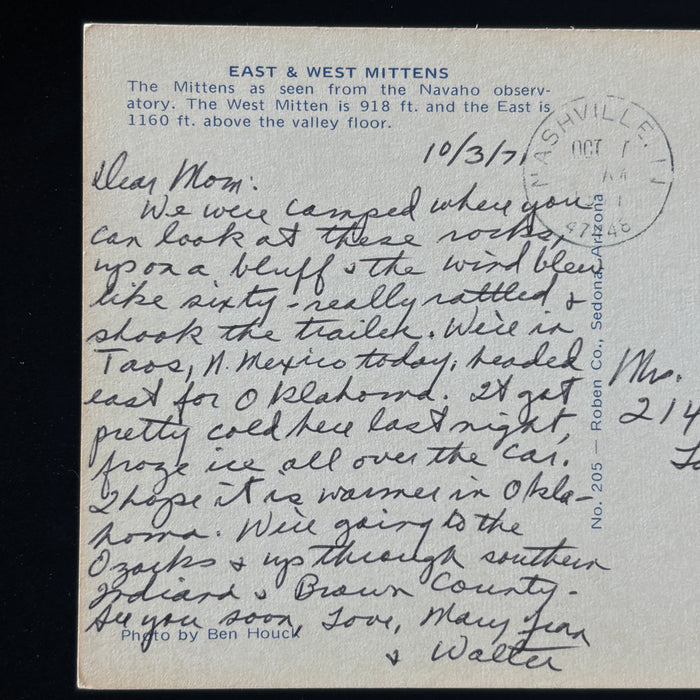 EAST & WEST MITTENS
The Mittens as seen from the Navaho observ-
atory. The West Mitten is 918 ft. and the East is
1160 ft. above the valley floor.
10/3/71
Dear Mom:
We were camped where you
can look at these rocks,
up on a bluff & the wind blew
like sixty - really rattled &
shook the trailer. We're in
Taos, N. Mexico today, headed
east for Oklahoma. It got
pretty cold here last night,
froze ice all over the car.
I hope it is warmer in Okla-
homa. We're going to the
Ozarks & up through southern
Indiana & Brown County.
See you soon, Love, Mary Jean
& Walter
Photo by Ben Houck
NASHVILLE, I
OCT
AM
No. 205 — Roben Co., Sedona, Arizona
Mrs.
214